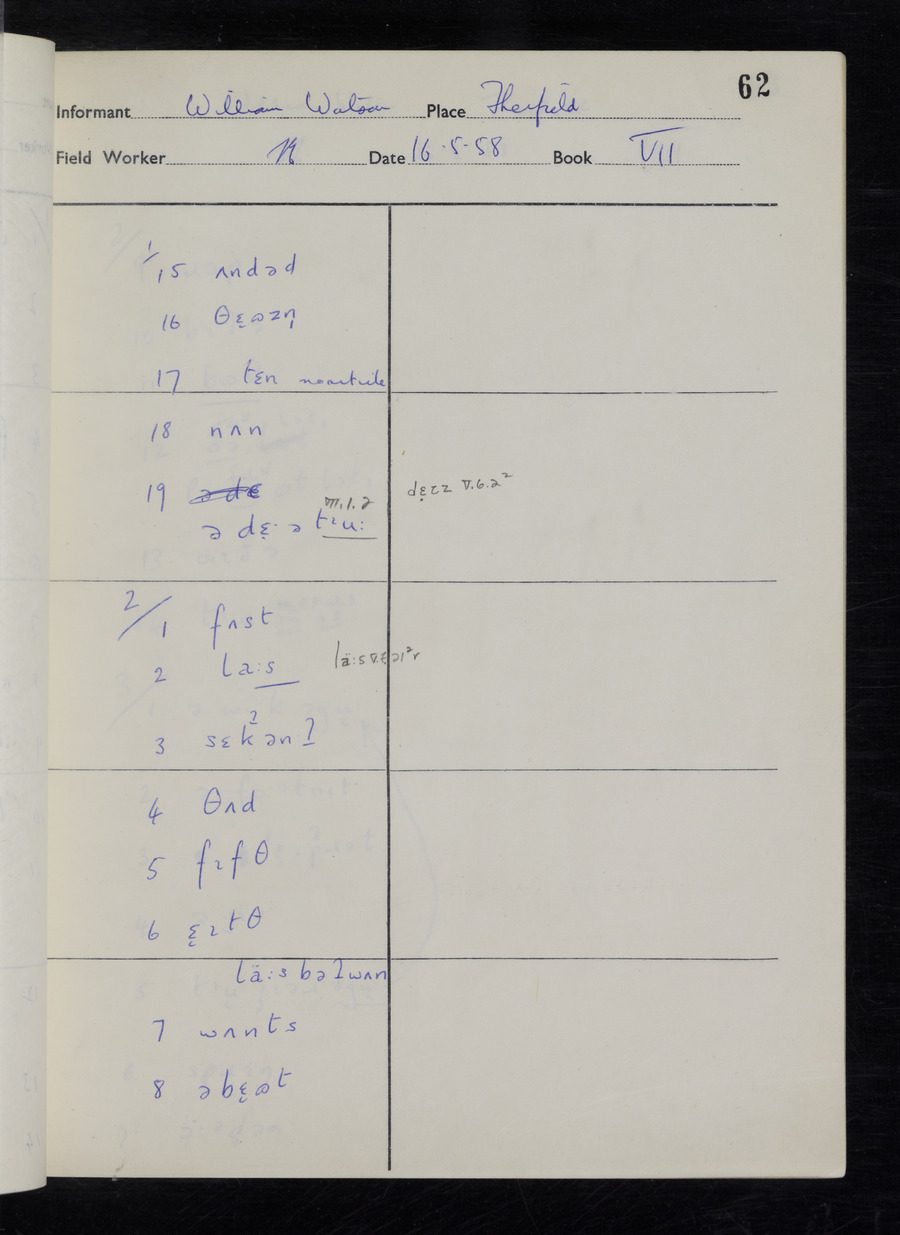 62
Informant William Watson Place Therfield
Field Worker Date 16.5.58 Book VII
1/15 ʌndəd
16 θɛ̝ɷzn̩
17 tɛn no article
18 nʌn
19 ə dɛ̝· ə tɪu:
VII.1.2
dɛ̝ɪz V.6.2²
2/1 fʌst
2 la:s
3 sɛkˀənʔ
4 θʌd
5 fɪfθ
6 ɛ̝ɪtθ
lä:s bəʔwʌn
7 wʌnts
8 əbɛ̝ɷt